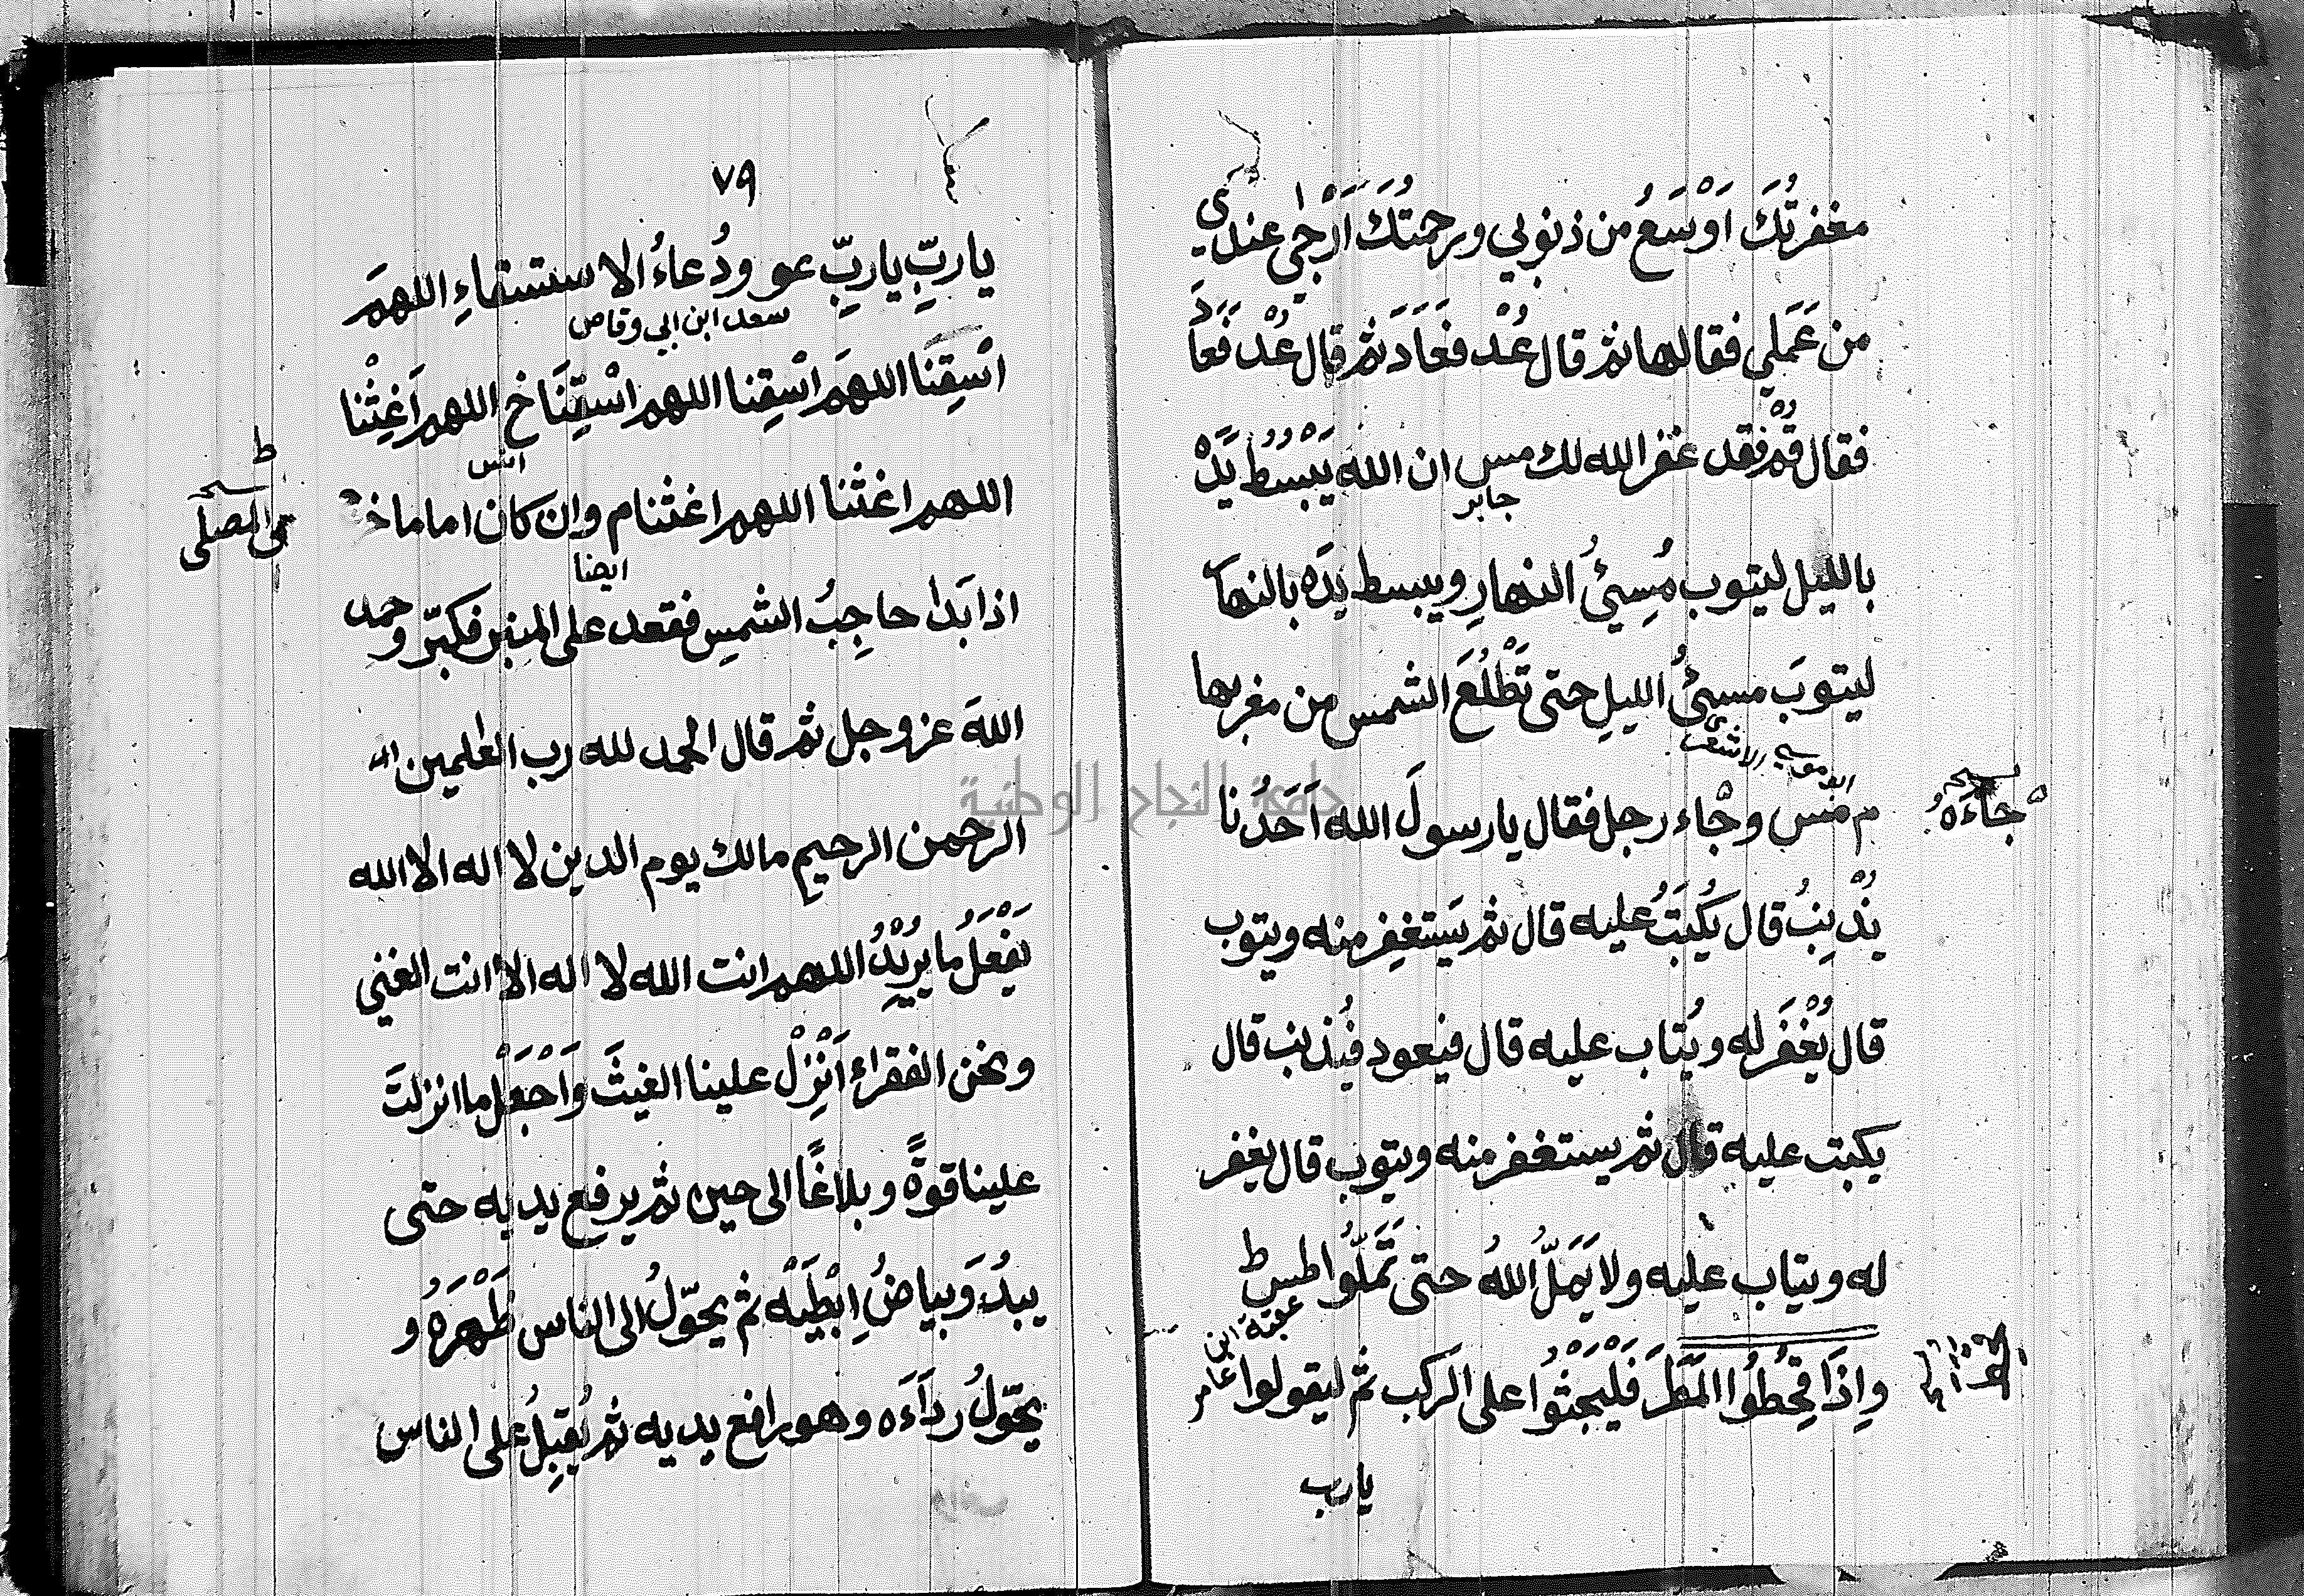 مغفرتُكَ اَوْسَعُ من ذنوبي ورحمتُكَ اَرْجٰى عندي
من عَمَلي فقالها ثم قال عُدْ فعَادَ ثم قال عُدْ فَعَادَ
فقال قُمْ فقد غفر الله لك مس ان الله يَبْسُطُ يَدَهُ
جابر
بالليل ليتوب مُسِيئُ النهارِ ويبسط يدَه بالنهار
ليتوبَ مسيئُ الليلِ حتى تَطْلُعَ الشمس من مغربها
ابو موسى الاشعري
م مس وجْاء رجل فقال يا رسولَ الله اَحَدُنا
جاءَهُ
يُذْنِبُ قال يُكتَبُ عليه قال ثم يَستغفِر منه ويتوب
قال يُغْفَر له ويُتاب عليه قال فيَعود فيُذنب قال
يكتب عليه قال ثم يستغفر منه ويتوب قال يغفر
له ويتاب عليه ولا يَمَلُّ اللهُ حتى تَمَلُّوا طس ط
عقبة ابن عامر
وإذَا قُحِطُوُا المَطَرَ فَلْيَجْثُوُا على الركب ثم ليقولوا
يا رب
٧٩
يا ربِّ يا ربِّ عو ودُعاءُ الاستسقاءِ اللهمَ
سعد ابن ابي وقاص
اسْقِنَا اللهمَ اسْقِنا اللهم اسْقِنَا خ اللهم اَغِثْنا
انس
اللهم اغثنا اللهم اغثنا م وان كان اماما خ
ايضا
المصلى
اذا بَدا حاجِبُ الشمسِ فقعد على المنبر فكبّر وحمد
اللهَ عز وجل ثم قال الحمد لله رب العٰلمين
الرحمن الرحيم مالك يوم الدين لا اله الا الله
يَفْعَلُ ما يُرِيْدُ اللهم انت الله لا اله الا انت الغني
ونحن الفقراءِ اَنْزِلْ علينا الغيثَ وَاجْعَلْ ما انزلتَ
علينا قوةً وبلاغًا الى حين ثم يرفع يديه حتى
يبدُوَ بياضُ اِبْطَيْه ثم يحوّلُ الى الناس ظَهْرَهُ و
يحوّلُ رداَءَه وهو رافع يديه ثم يُقبِلُ على الناس
جامعة النجاح الوطنية